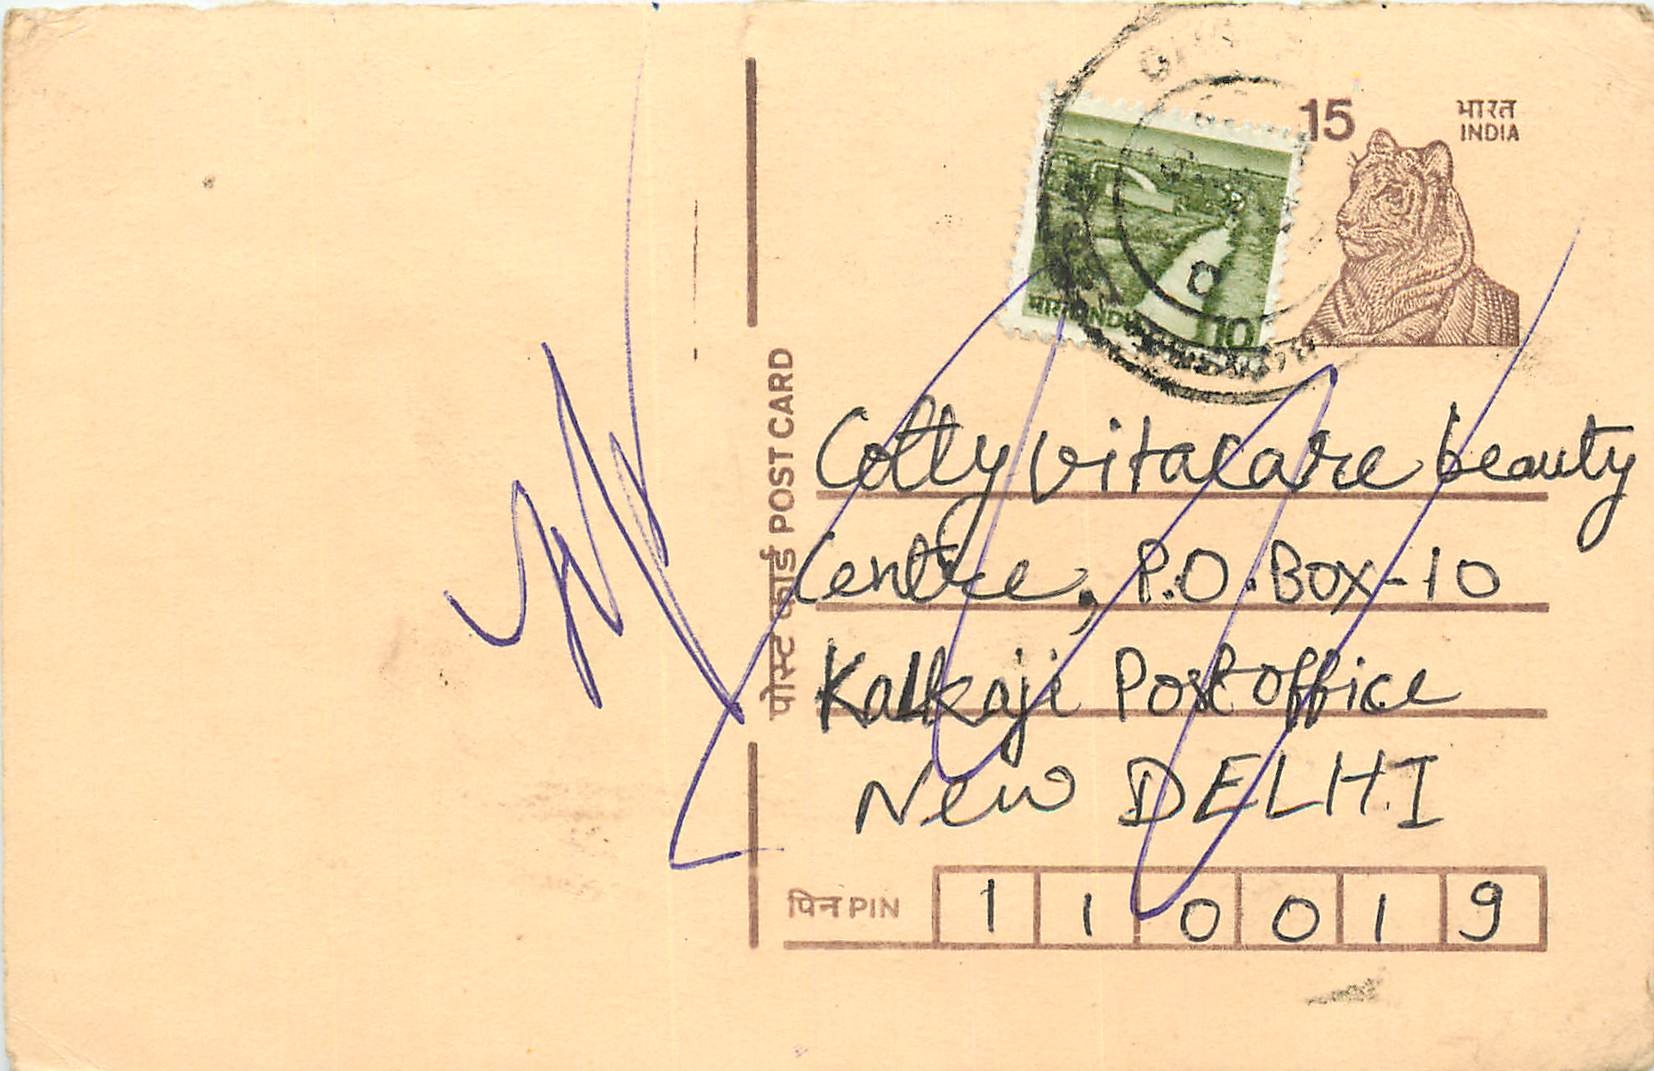 15
भारत
INDIA
भारत INDIA 10
पोस्ट कार्ड POST CARD
Cotty vitacare beauty
Centre, P.O. Box-10
Kalkaji Post office
New DELHI
पिन PIN 1 1 0 0 1 9